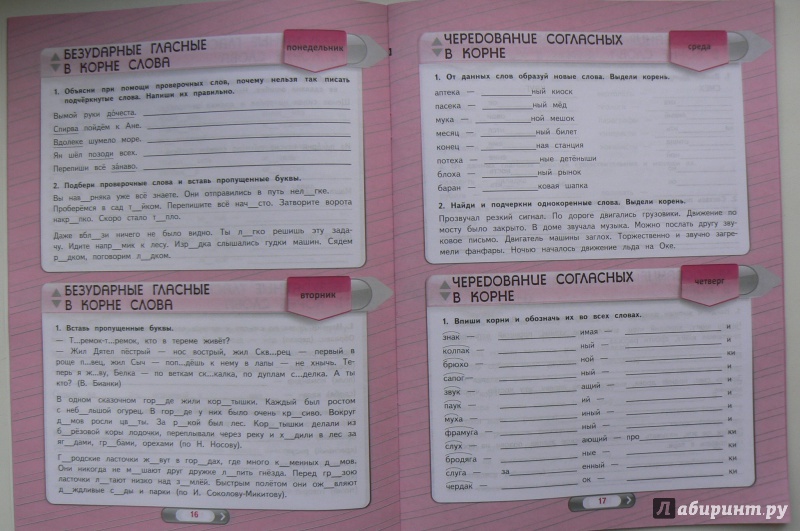 БЕЗУДАРНЫЕ ГЛАСНЫЕ
В КОРНЕ СЛОВА
понедельник
1. Объясни при помощи проверочных слов, почему нельзя так писать
подчёркнутые слова. Напиши их правильно.
Вымой руки дочеста.
Спирва пойдём к Ане.
Вдолеке шумело море.
Ян шёл позоди всех.
Перепиши всё занаво.
2. Подбери проверочные слова и вставь пропущенные буквы.
Вы нав__рняка уже всё знаете. Они отправились в путь нал__гке.
Проберёмся в сад т__йком. Перепишите всё нач__сто. Затворите ворота
накр__пко. Скоро стало т__пло.
Даже вбл__зи ничего не было видно. Ты л__гко решишь эту зада-
чу. Идите напр__мик к лесу. Изр__дка слышались гудки машин. Сядем
р__дком, поговорим л__дком.
БЕЗУДАРНЫЕ ГЛАСНЫЕ
В КОРНЕ СЛОВА
вторник
1. Вставь пропущенные буквы.
— Т...ремок-т...ремок, кто в тереме живёт?
— Жил Дятел пёстрый — нос вострый, жил Скв...рец — первый в
роще п...вец, жил Сыч — поп...дёшь к нему в лапы — не хнычь. Те-
перь я ж...ву, Белка — по веткам ск...калка, по дуплам с...делка. А ты
кто? (В. Бианки)
В одном сказочном гор__де жили кор__тышки. Каждый был ростом
с неб__льшой огурец. В гор__де у них было очень кр__сиво. Вокруг
д__мов росли цв__ты. За р__кой был лес. Кор__тышки делали из
б__рёзовой коры лодочки, переплывали через реку и х__дили в лес за
яг__дами, гр__бами, орехами (по Н. Носову).
Г__родские ласточки ж__вут в гор__дах, где много к__менных д__мов.
Они никогда не м__шают друг дружке л__пить гнёзда. Перед гр__зою
ласточки л__тают низко над з__млёй. Быстрым полётом они ож__вляют
д__ждливые с__ды и парки (по И. Соколову-Микитову).
16
ЧЕРЕДОВАНИЕ СОГЛАСНЫХ
В КОРНЕ
среда
1. От данных слов образуй новые слова. Выдели корень.
аптека — ный киоск
пасека — ный мёд
мука — ной мешок
месяц — ный билет
конец — ная станция
потеха — ные детёныши
блоха — ный рынок
баран — ковая шапка
2. Найди и подчеркни однокоренные слова. Выдели корень.
Прозвучал резкий сигнал. По дороге двигались грузовики. Движение по
мосту было закрыто. В доме звучала музыка. Можно послать другу зву-
ковое письмо. Двигатель машины заглох. Торжественно и звучно загре-
мели фанфары. Ночью началось движение льда на Оке.
ЧЕРЕДОВАНИЕ СОГЛАСНЫХ
В КОРНЕ
четверг
1. Впиши корни и обозначь их во всех словах.
знак — имая — и
колпак — ный — и
брюхо — ной — ки
сапог — ный — и
звук — ащий — и
паук — ий — и
муха — иный — и
фрамуга — ный — и
слух — ающий — про ки
бродяга — ные — ки
слуга — за енный — ки
чердак — ок — ки
17
Лабиринт.ру